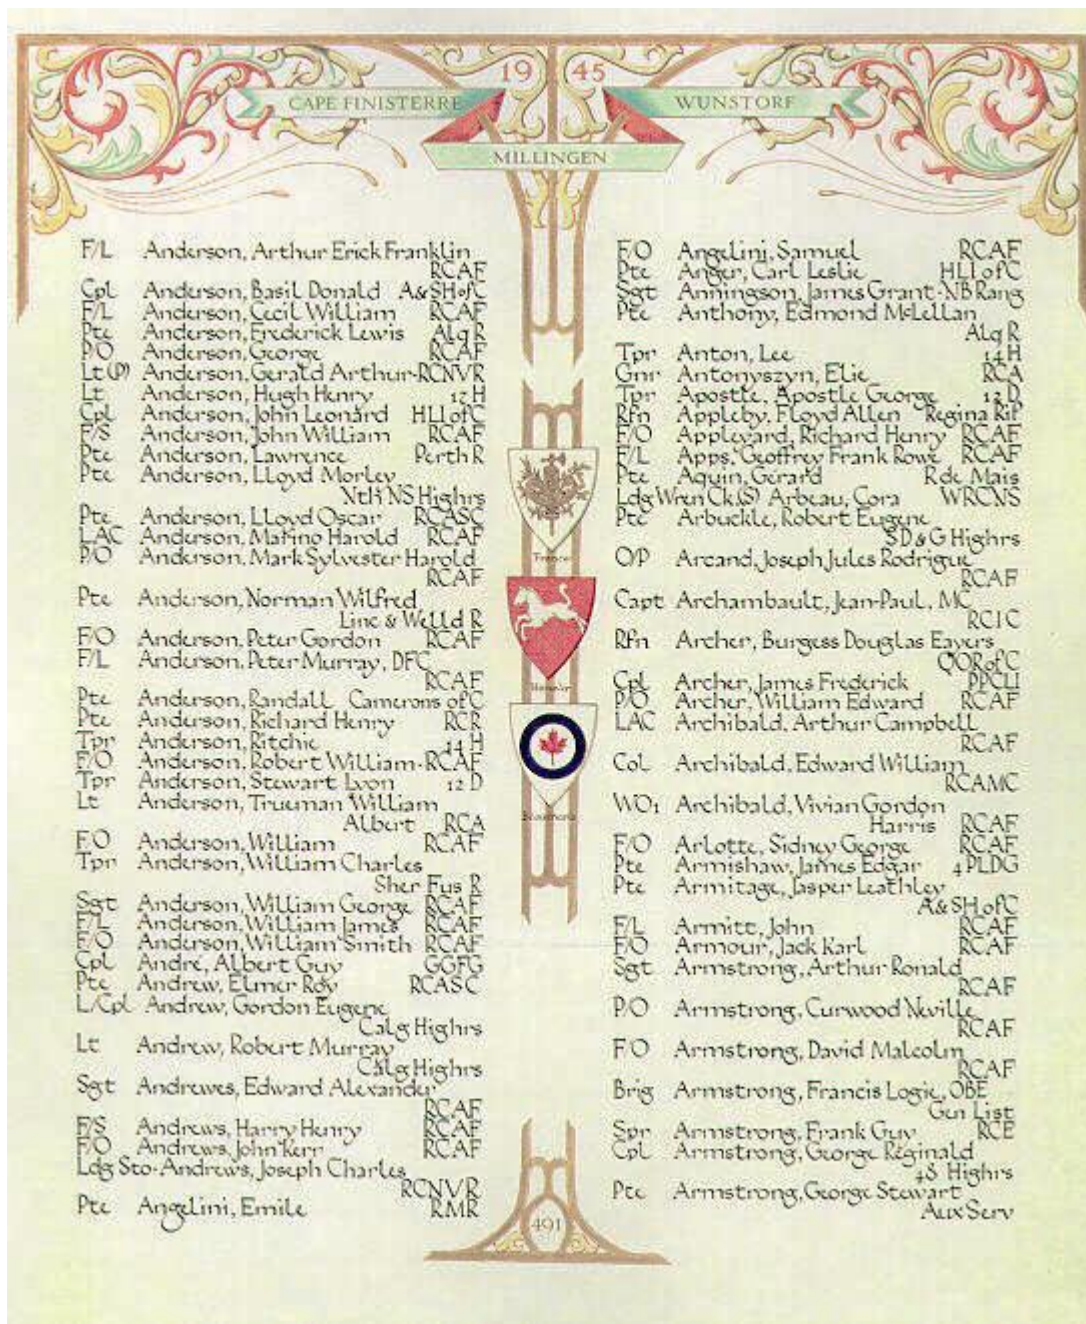 19 45
CAPE FINISTERRE
WUNSTORF
MILLINGEN
F/L Anderson, Arthur Erick Franklin
RCAF
Cpl Anderson, Basil Donald A&SHofC
F/L Anderson, Cecil William RCAF
Pte Anderson, Frederick Lewis Alq R
P/O Anderson, George RCAF
Lt (P) Anderson, Gerald Arthur-RCNVR
Lt Anderson, Hugh Henry 12 H
Cpl Anderson, John Leonard HLI of C
F/S Anderson, John William RCAF
Pte Anderson, Lawrence Perth R
Pte Anderson, Lloyd Morley
Nth NS Highrs
Pte Anderson, Lloyd Oscar RCASC
LAC Anderson, Marino Harold RCAF
P/O Anderson, Mark Sylvester Harold
RCAF
Pte Anderson, Norman Wilfred
Linc & Welld R
F/O Anderson, Peter Gordon RCAF
F/L Anderson, Peter Murray, DFC
RCAF
Pte Anderson, Randall Camerons of C
Pte Anderson, Richard Henry RCR
Tpr Anderson, Ritchie 14 H
F/O Anderson, Robert William-RCAF
Tpr Anderson, Stewart Lyon 12 D
Lt Anderson, Trueman William
Albert RCA
F/O Anderson, William RCAF
Tpr Anderson, William Charles
Sher Fus R
Sgt Anderson, William George RCAF
F/L Anderson, William James RCAF
F/O Anderson, William Smith RCAF
Cpl Andre, Albert Guy GGFG
Pte Andrew, Elmer Roy RCASC
L/Cpl Andrew, Gordon Eugene
Calg Highrs
Lt Andrew, Robert Murray
Calg Highrs
Sgt Andrewes, Edward Alexander
RCAF
F/S Andrews, Harry Henry RCAF
F/O Andrews, John Kerr RCAF
Ldg Sto-Andrews, Joseph Charles
RCNVR
Pte Angelini, Emile RMR
F/O Angelini, Samuel RCAF
Pte Anger, Carl Leslie HLI of C
Sgt Anningson, James Grant-NB Rang
Pte Anthony, Edmond McLellan
Alq R
Tpr Anton, Lee 14 H
Gnr Antonyszyn, Elie RCA
Tpr Apostle, Apostle George 12 D
Rfn Appleby, Floyd Allen Regina Rif
F/O Appleyard, Richard Henry RCAF
F/L Apps, Geoffrey Frank Rowe RCAF
Pte Aquin, Gerard R de Mais
Ldg Wren Ck.(S) Arbeau, Cora WRCNS
Pte Arbuckle, Robert Eugene
SD&G Highrs
O/P Arcand, Joseph Jules Rodrigue
RCAF
Capt Archambault, Jean-Paul, MC
RCIC
Rfn Archer, Burgess Douglas Eayers
QOR of C
Cpl Archer, James Frederick PPCLI
P/O Archer, William Edward RCAF
LAC Archibald, Arthur Campbell
RCAF
Col Archibald, Edward William
RCAMC
WO1 Archibald, Vivian Gordon
Harris RCAF
F/O Arlotte, Sidney George RCAF
Pte Armishaw, James Edgar 4 PLDG
Pte Armitage, Jasper Leathley
A&SH of C
F/L Armitt, John RCAF
F/O Armour, Jack Karl RCAF
Sgt Armstrong, Arthur Ronald
RCAF
P/O Armstrong, Curwood Neville
RCAF
F/O Armstrong, David Malcolm
RCAF
Brig Armstrong, Francis Logie, OBE
Gen List
Spr Armstrong, Frank Guy RCE
Cpl Armstrong, George Reginald
48 Highrs
Pte Armstrong, George Stewart
Aux Serv
France
Hanover
491